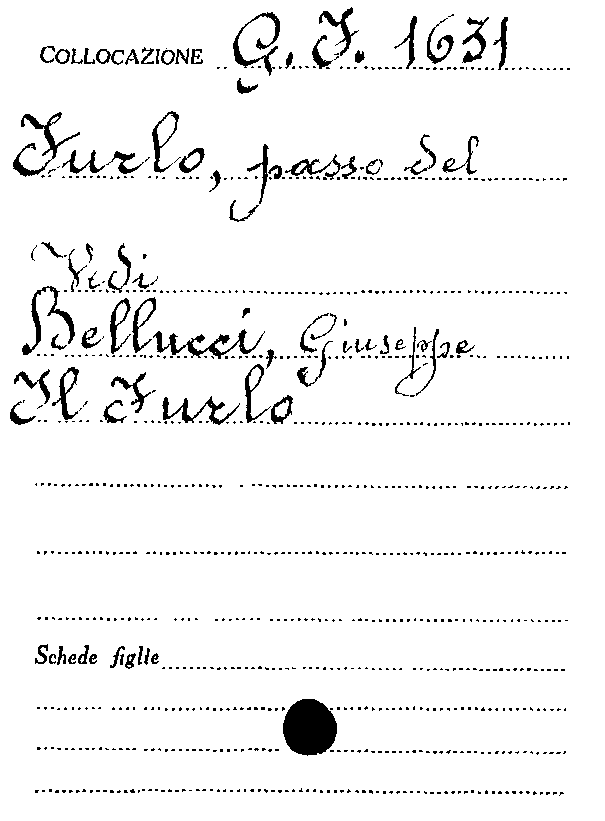 COLLOCAZIONE G. F. 1631
Furlo, passo del
Vedi
Bellucci, Giuseppe
Il Furlo
Schede figlie